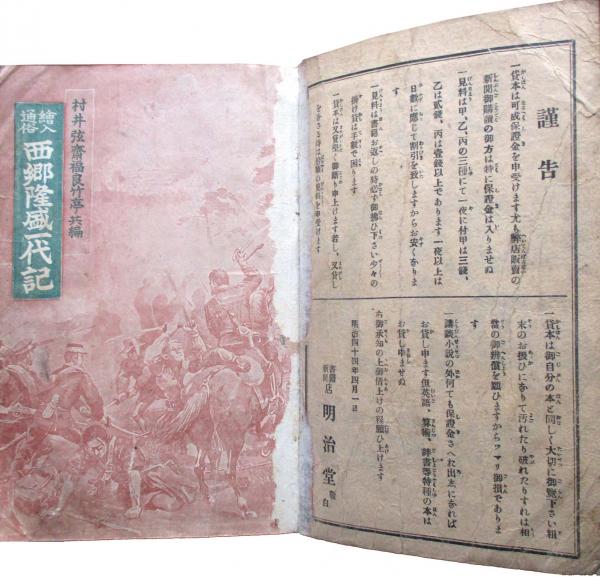 謹告
一貸本は可成保證金を申受けます尤も弊店販賣の
新聞御購讀の御方は特に保證金は入りませぬ
一見料は甲、乙、丙の三種にて一夜に付甲は三錢、
乙は貳錢、丙は壹錢以上であります一夜以上は
日數に應じて割引を致しますからお安くなりま
す
一見料は書籍お返しの時必ず御拂ひ下さい少々の
掛け貸は手數で困ります
一貸本は又貸堅く御斷り申上げます若し、又貸し
一貸本は御自分の本と同しく大切に御覽下さい粗
末のお扱ひになりて汚れたり破れたりすれは相
當の御辨償を願ひますからツマリ御損でありま
す
一講談小說の外何ても保證金さへお出しになれば
お貸し申ます但英語、算術、辭書等特種の本は
お貸し申ませぬ
右御承知の上御借上けの程願ひ上けます
明治四十四年四月一日
書籍新聞店 明治堂 敬白
村井弦齋福良竹亭共編
繪入通俗 西鄕隆盛一代記